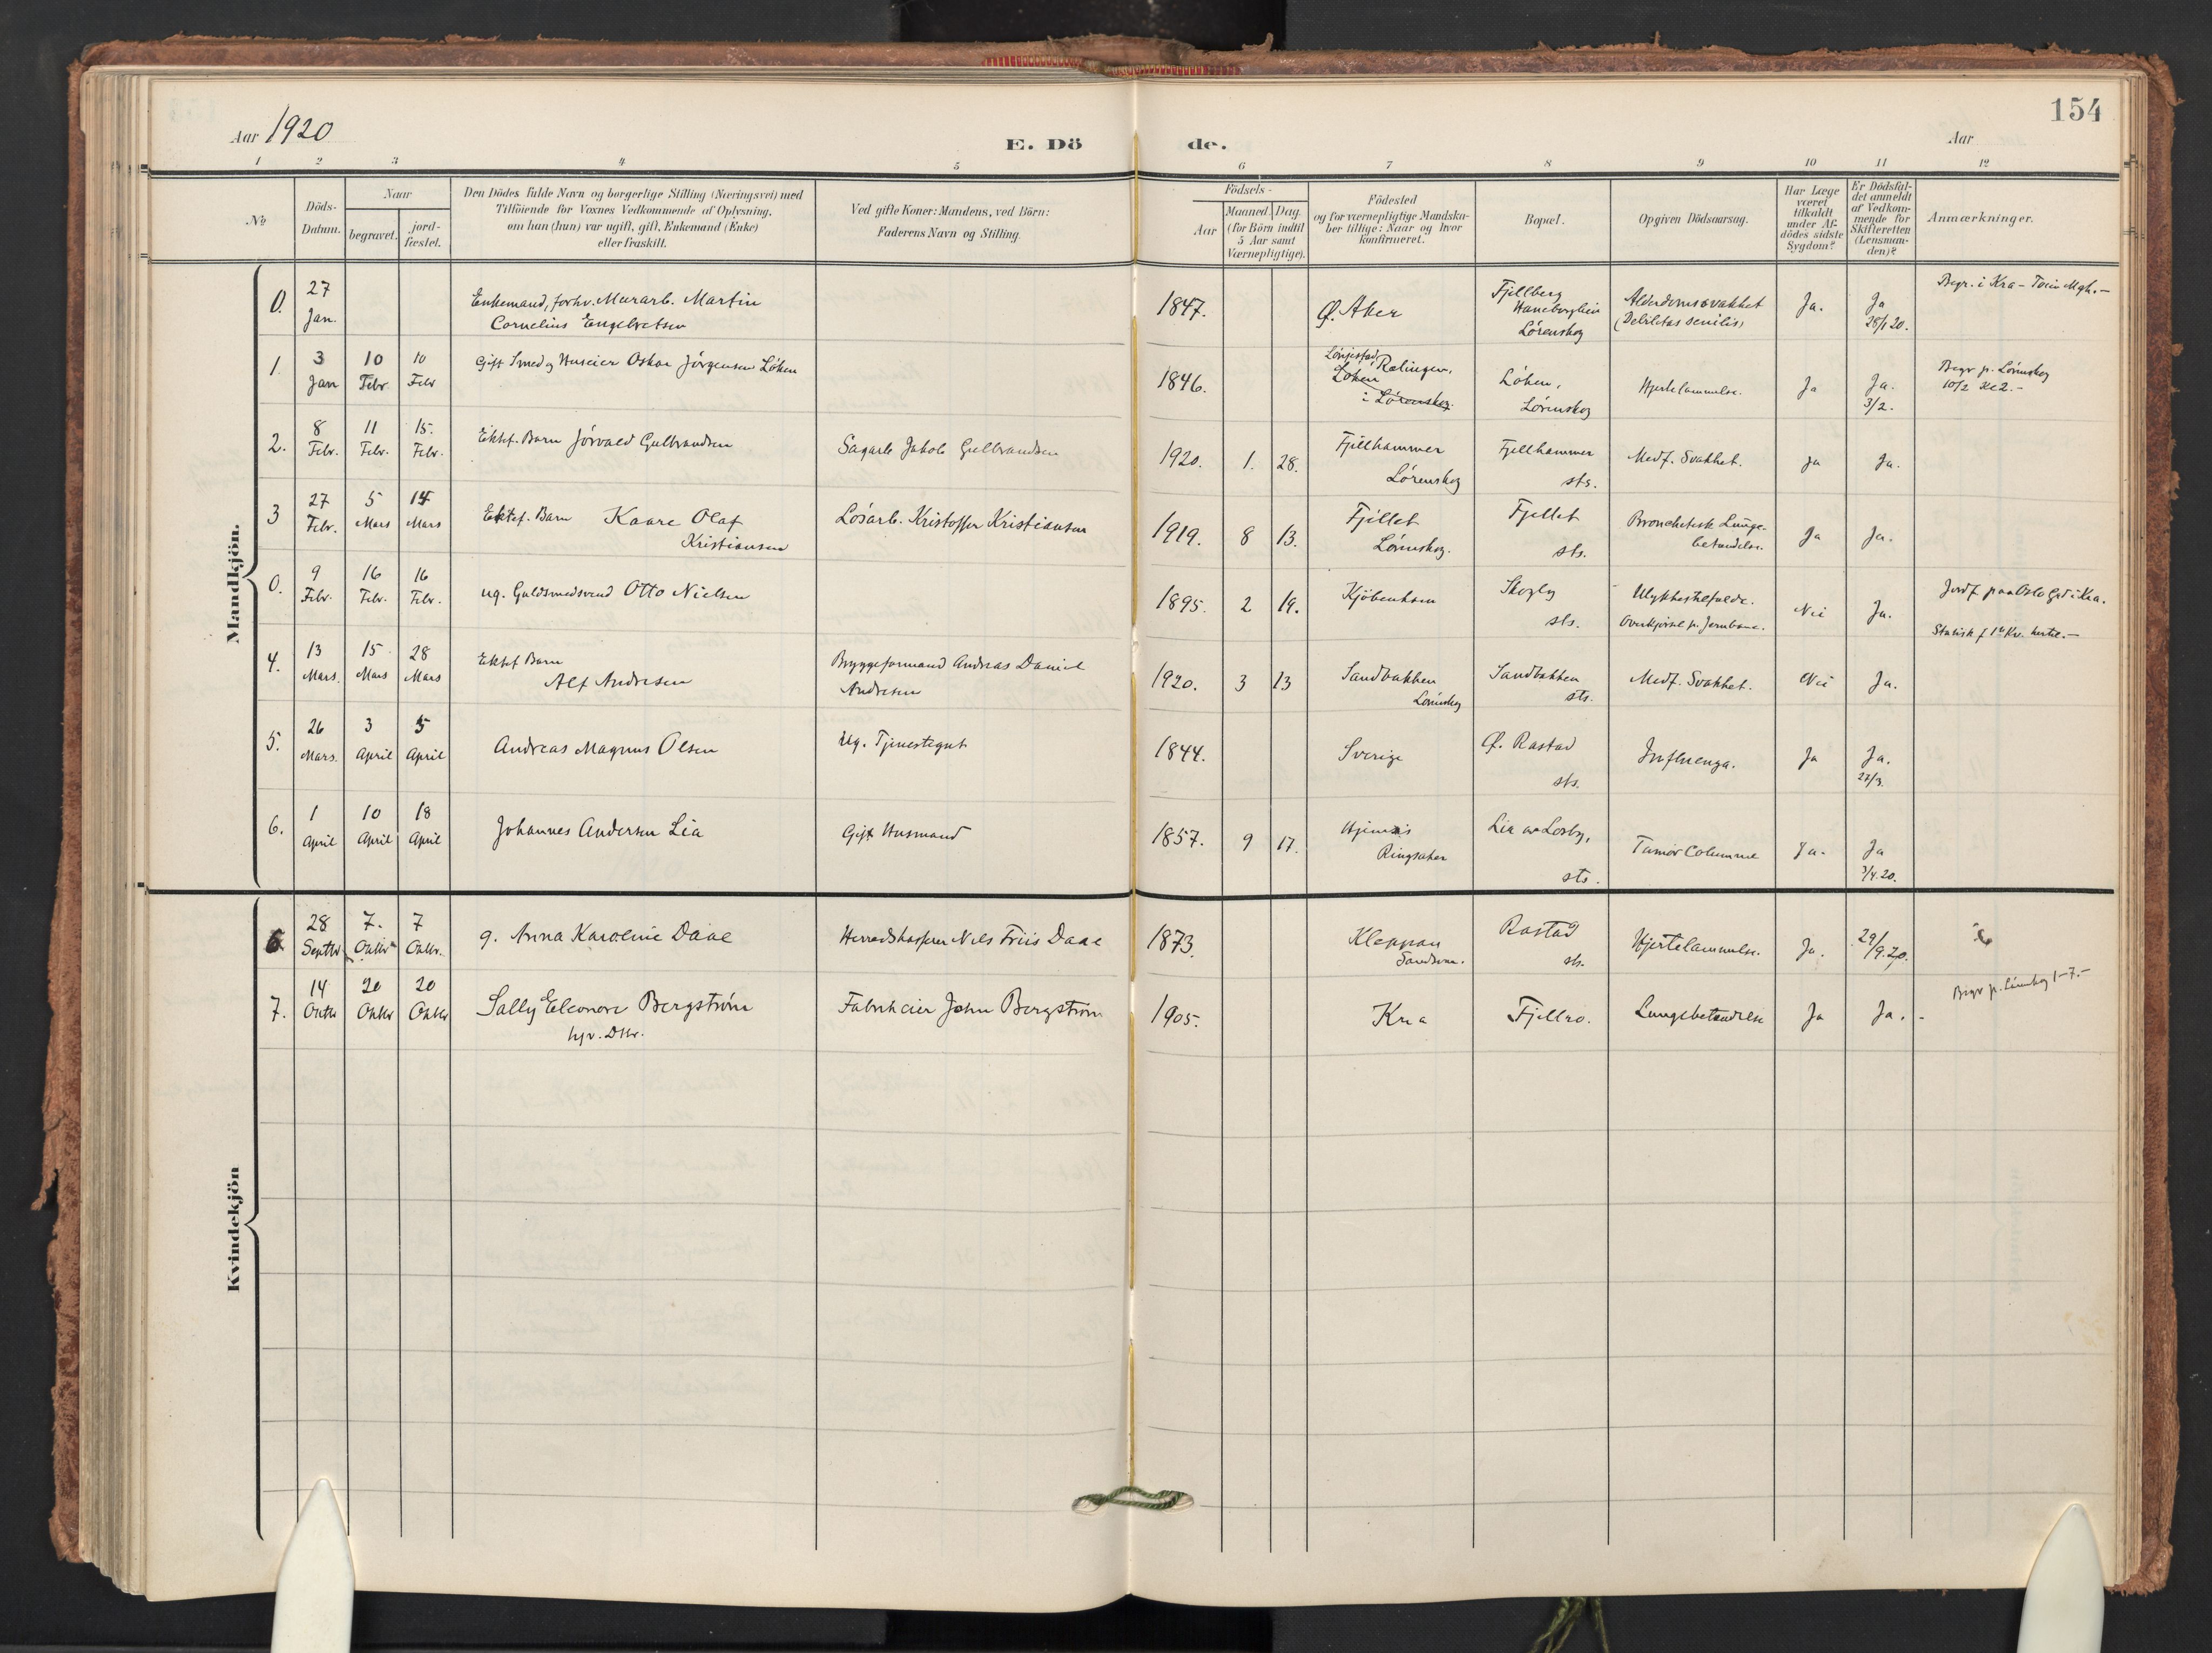 154
Aar 1920
E. Dö
de.
Aar
1 2 3 4 5 6 7 8 9 10 11 12
No
Döds-
Datum.
Naar
begravet.
jord-
fæstet.
Den Dödes fulde Navn og borgerlige Stilling (Næringsvei) med
Tilföiende for Voxnes Vedkommende af Oplysning,
om han (hun) var ugift, gift, Enkemand (Enke)
eller fraskilt.
Ved gifte Koner: Mandens, ved Börn:
Faderens Navn og Stilling.
Födsels-
Aar
Maaned. Dag.
(for Börn indtil
5 Aar samt
Værnepligtige).
Födested
og for værnepligtige Mandska-
ber tillige: Naar og hvor
konfirmeret.
Bopæl.
Opgiven Dödsaarsag.
Har Læge
været
tilkaldt
under Af-
dödes sidste
Sygdom?
Er Dödsfal-
det anmeldt
af Vedkom-
mende for
Skifteretten
(Lensman-
den)?
Anmærkninger.
Mandkjön.
0. 27 Jan.
Enkemand, forhv. Murarb. Martin
Cornelius Engebretsen
1847. Ø. Aker
Fjellberg
Haneborglien
Lørenskog
Alderdomssvakhet
(Debilitas senilis)
Ja.
Ja
28/1 20.
1. 3 Jan 10 Febr. 10 Febr
Gift Smed og Huseier Oskar Jørgensen Løken
1846.
Rælingen,
Løken
i Lørenskog.
Løken,
Lørenskog
Hjertelammelse.
Ja
Ja.
3/2.
Begr p. Lørenskog
10/2
2. 8 Febr. 11 Febr. 15. Febr.
Ektef. Barn Jørvald Gulbrandsen
Sagarb Jakob Gulbrandsen
1920. 1. 28.
Fjellhammer
Lørenskog
Fjellhammer
sts.
Medf. Svakhet.
Ja
Ja.
3 27 Febr. 5 Mars 14 Mars
Ektef. Barn Kaare Olaf
Kristiansen
Løsarb. Kristoffer Kristiansen
1919. 8 13.
Fjellet
Lørenskog.
Fjellet
sts.
Bronchetisk Lunge-
betændelse.
Ja
Ja.
0. 9 Febr. 16 Febr. 16 Febr.
ug. Guldsmedsvend Otto Nielsen
1895. 2 19.
Kjöbenhavn
Skogly
sts.
Ulykkestilfælde.
Overkjørsel p. Jernbane.
Nei
Ja.
4. 13 Mars. 15 Mars 28 Mars
Ektef Barn
Alf Andresen
Bryggeformand Andreas Daniel
Andresen
1920. 3 13
Sandbakken
Lørenskog
Sandbakken
sts.
Medf. Svakhet.
Nei
Ja.
5. 26 Mars. 3 April 5 April
Andreas Magnus Olsen
Ug. Tjenestegut
1844.
Sverige
Ø. Rastad
sts.
Influenza.
Ja
Ja.
27/3.
6. 1 April 10 April 18 April
Johannes Andersen Lia
Gift Husmand
1857. 9 17.
Ringsaker
Lia av Losby,
sts.
Tumor Columnæ
Ja.
Ja
3/4.20.
Kvindekjön
6. 28 Septbr 7. Oktbr 7 Oktbr.
g. Anna Karoline Daae
Herredskasserer Nils Friis Daae
1873.
Kleppan
Sandsvær.
Rastad
sts.
Hjertelammelse.
Ja.
29/9.20.
7. 14 Oktbr 20 Oktbr 20 Oktbr
Sally Eleonore Bergstrøm
hjv. Dtr.
Fabrikeier John Bergstrøm
1905.
Kra
Fjellro.
Lungebetændelse
Ja
Ja.
Begr p. Lørenskog 1-7.-